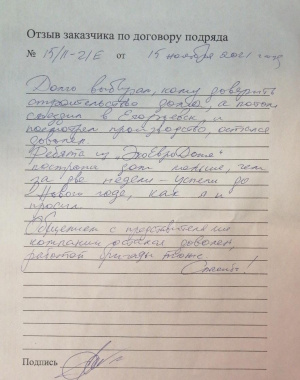 Отзыв заказчика по договору подряда
№ 15/П-21Е от 15 ноября 2021 года
Долго выбирал, кому доверить
строительство дома, а потом
съездил в Егорьевск, и
посмотрел производство, остался
доволен.
Ребята из "ЭкоЕвроДома"
построили дом меньше, чем
за две недели - успели до
Нового года, как я и
просил.
Общением с представителями
компании остался доволен
работой бригады тоже.
Спасибо!
Подпись